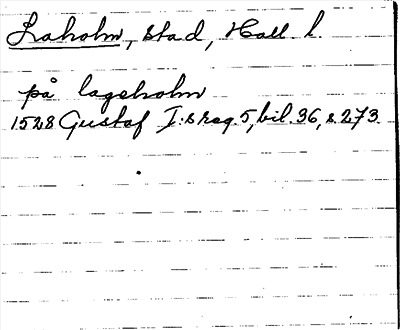 Laholm, Stad, Hall l.
på lageholm
1528 Gustaf I:s reg. 5, bil. 36, s. 273.